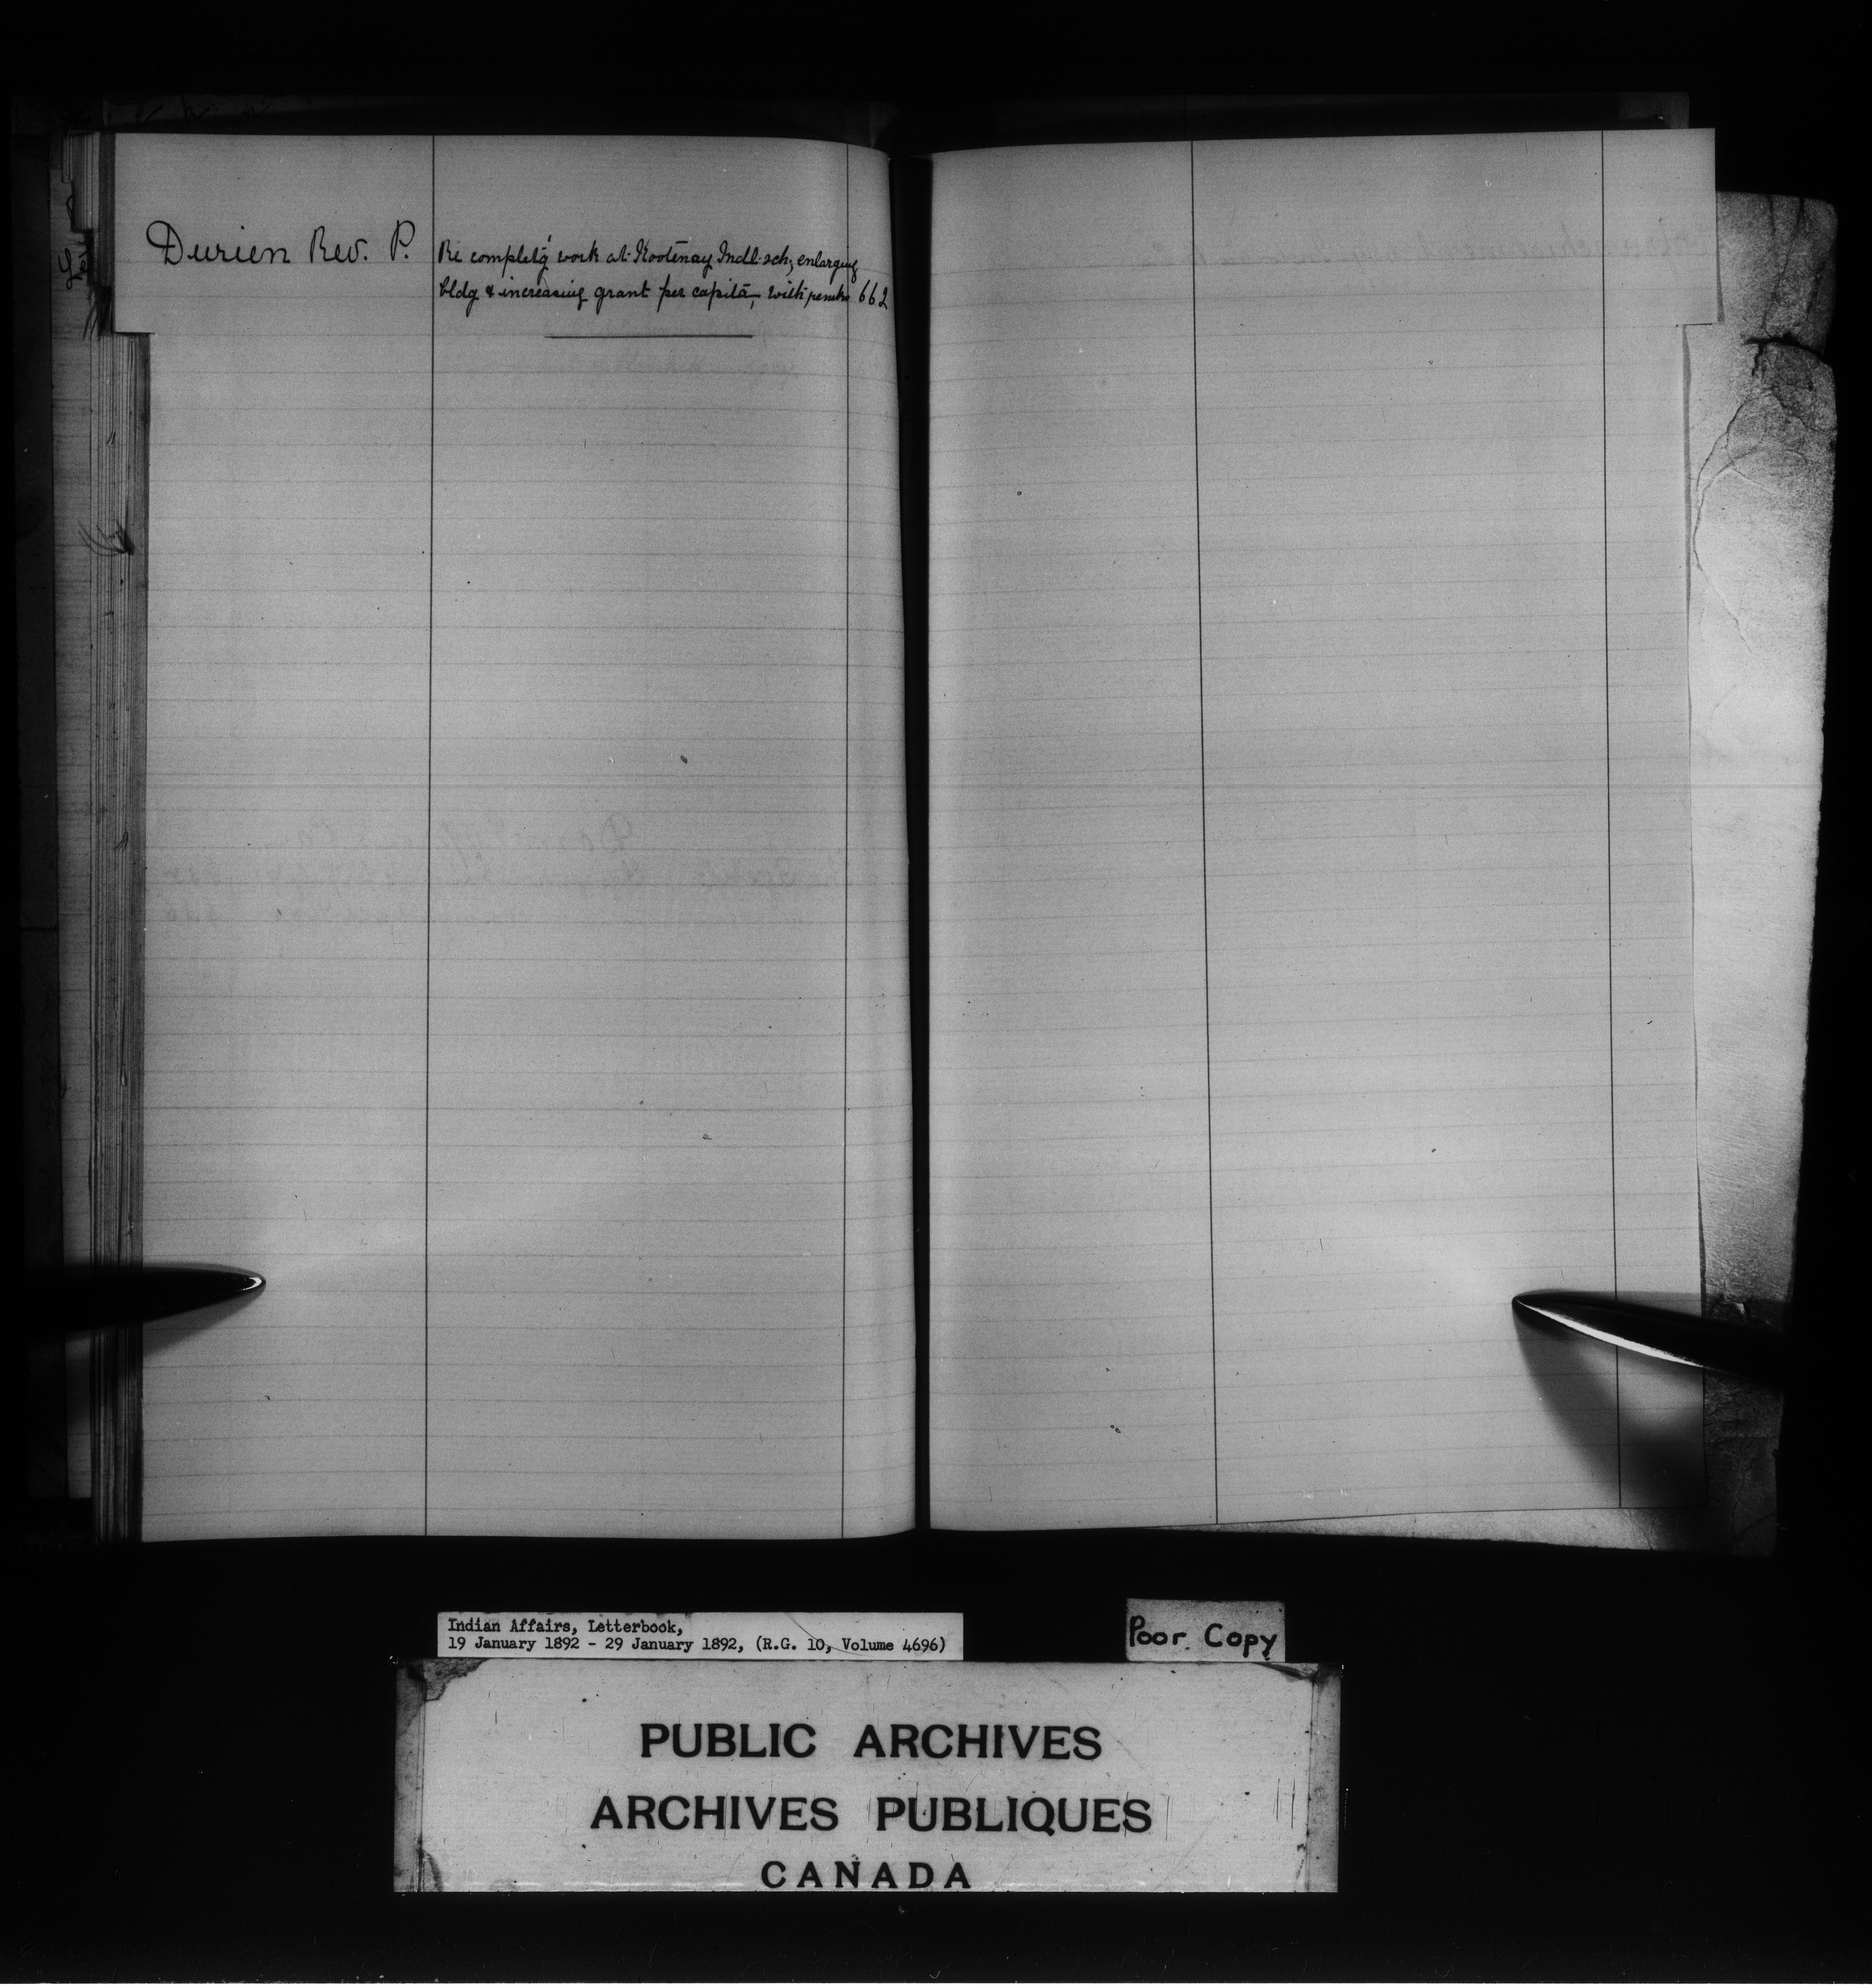 Durien Rev. P.
Re completg work at Kootenay Indl. sch, enlarging
bldg & increasing grant per capita, with 662
Indian Affairs, Letterbook,
19 January 1892 - 29 January 1892, (R.G. 10, Volume 4696)
Poor Copy
PUBLIC ARCHIVES
ARCHIVES PUBLIQUES
CANADA